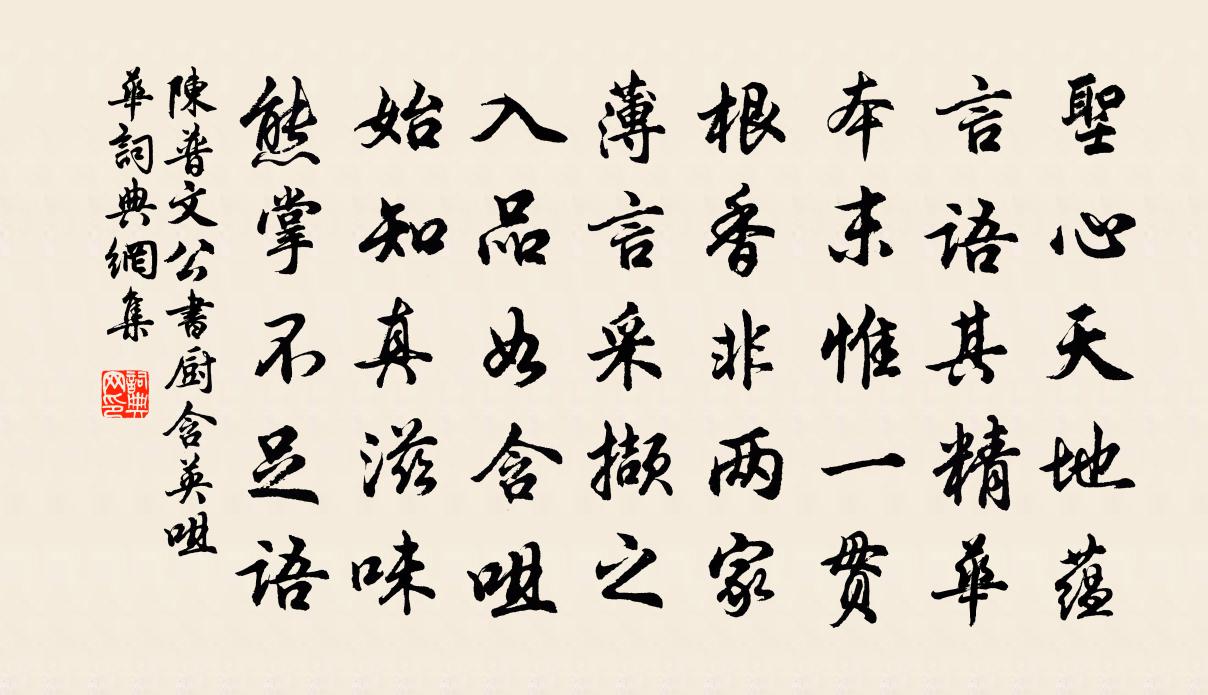 聖心天地蘊
言語其精華
本末惟一貫
根香非两家
薄言采擷之
入品如含咀
始知真滋味
熊掌不足語
陳普文公書厨含英咀
華詞典網集
詞典
网印